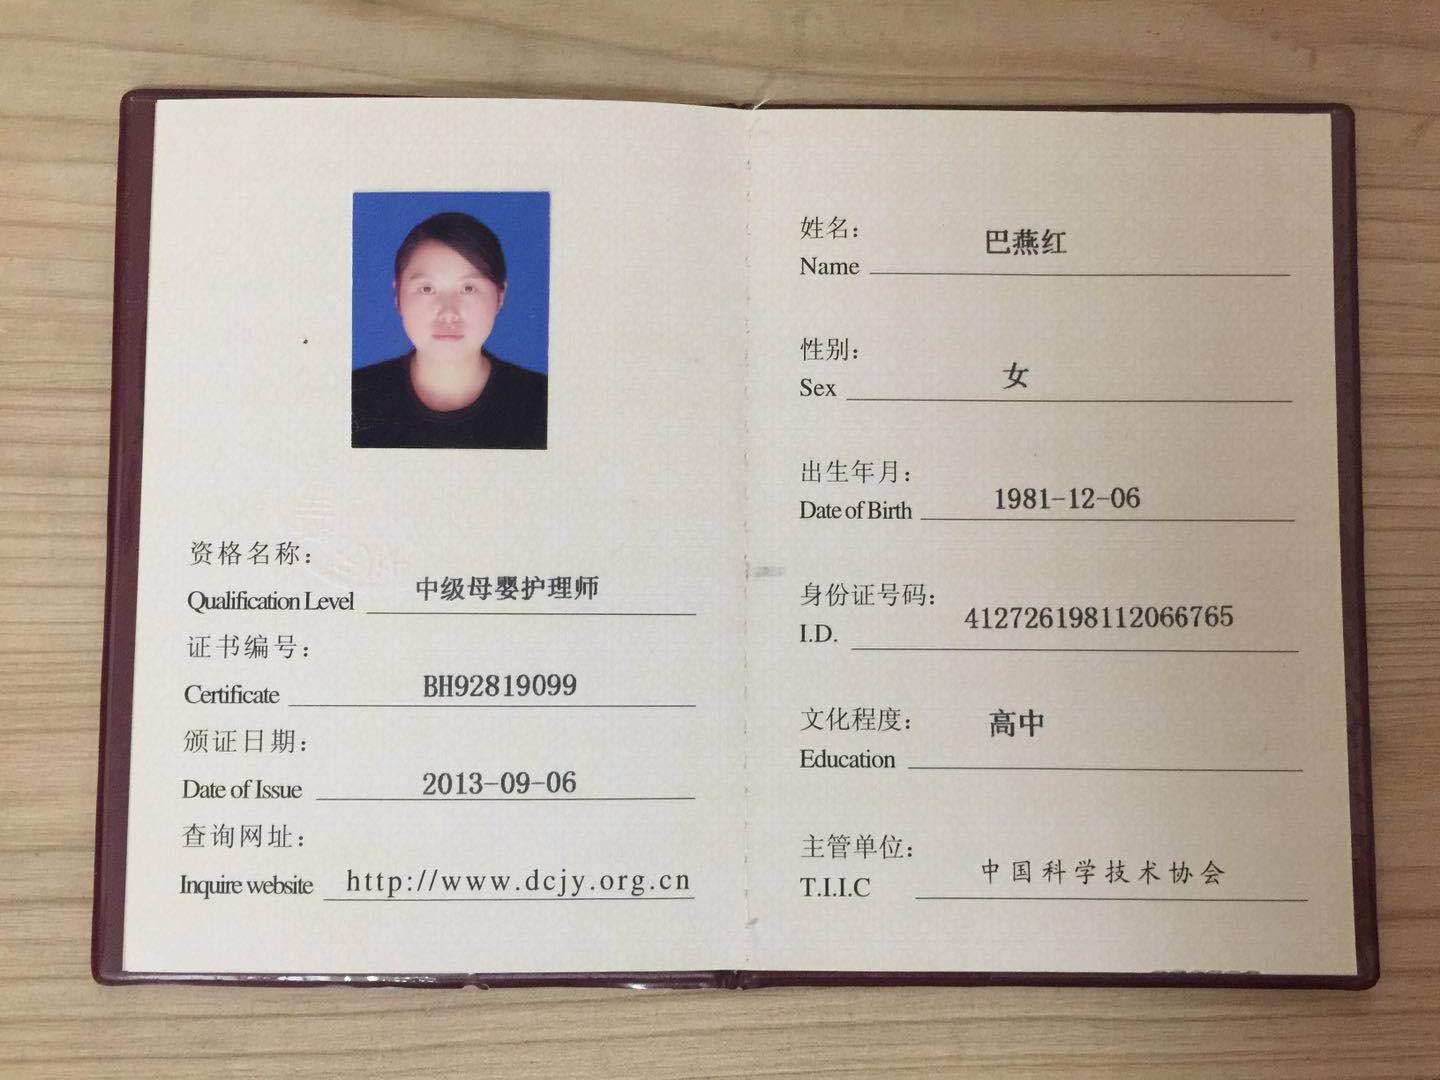 资格名称：
Qualification Level 中级母婴护理师
证书编号：
Certificate BH92819099
颁证日期：
Date of Issue 2013-09-06
查询网址：
Inquire website http://www.dcjy.org.cn
姓名：
Name 巴燕红
性别：
Sex 女
出生年月：
Date of Birth 1981-12-06
身份证号码：
I.D. 412726198112066765
文化程度： 高中
Education
主管单位：
T.I.I.C 中国科学技术协会